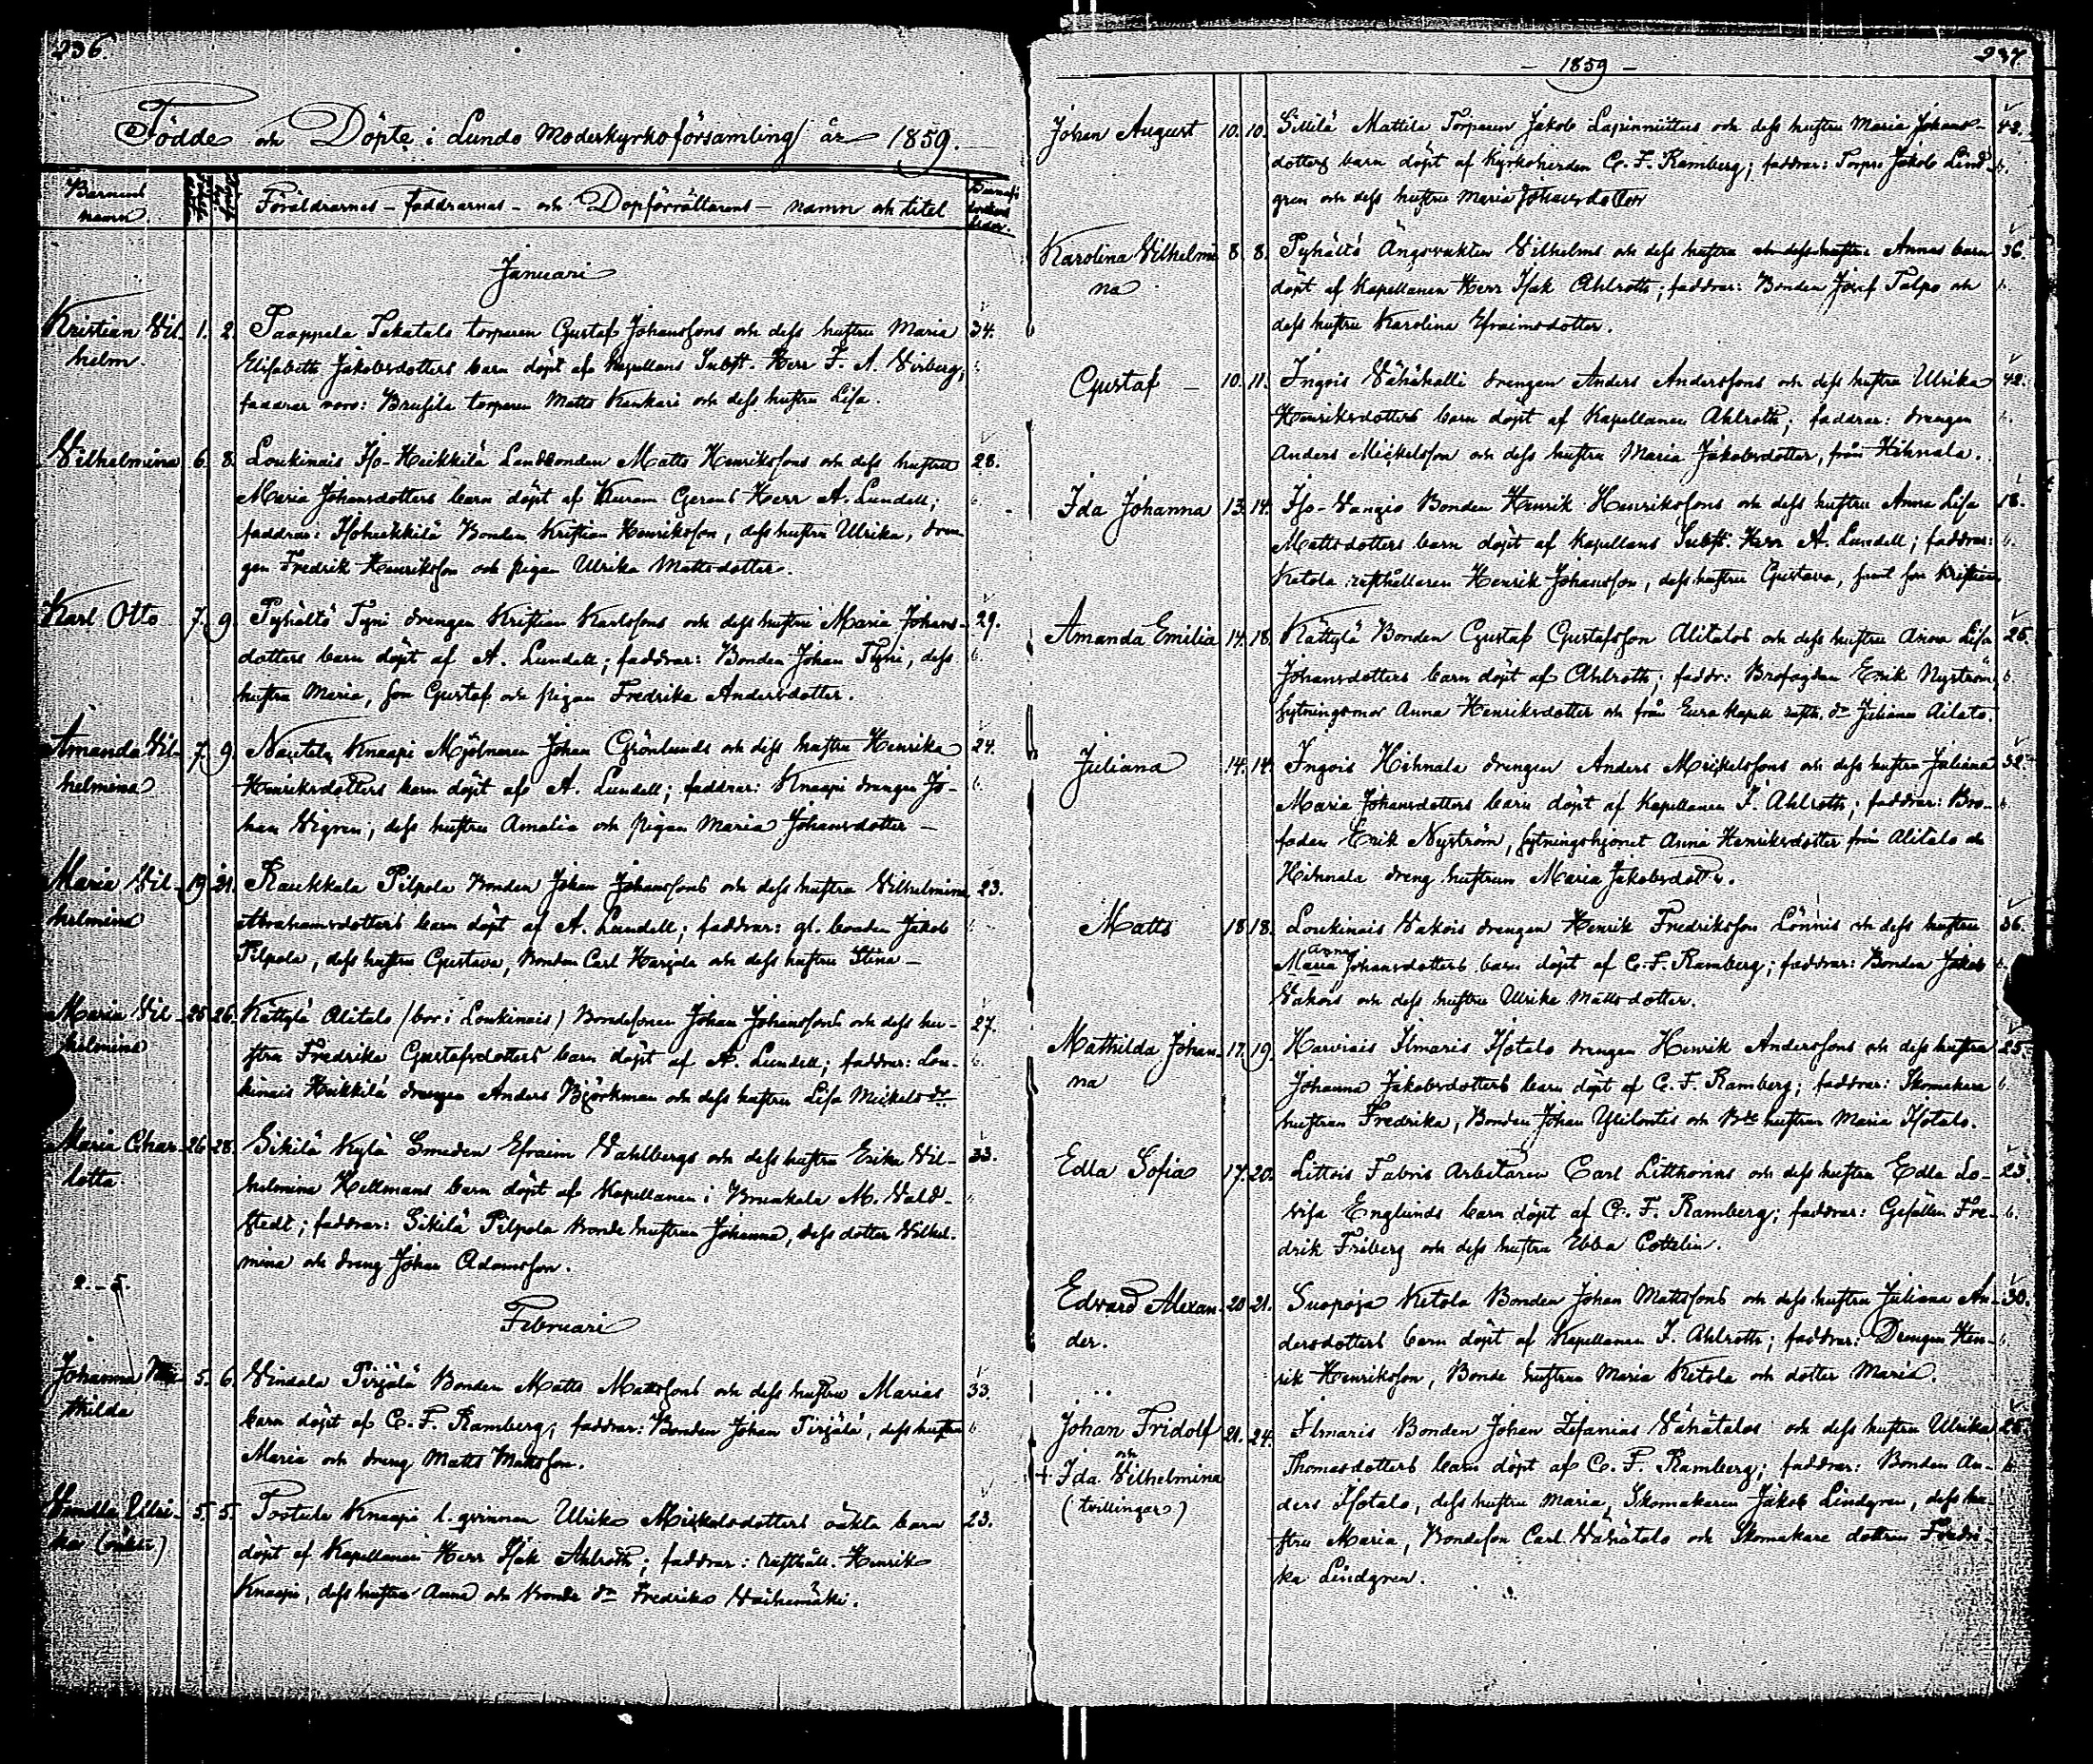 236.
Födde och Döpte i Lundo Moderkyrkoförsamling år 1859.
Barnens namn
Föräldrarnes - faddrarnas - och Dopförrättarens - namn och titel
Januari
Kristian Vil- 1. 2. Paappala Takatalo torparen Gustaf Johanssons och dess hustru Maria 34.
helm. Elisabeth Jakobsdotters barn döpt af Kapellans Subst. Herr F. A. Virberg,
faddrar voro: Brusila torparen Matts Kankari och dess hustru Lisa.
Vilhelmina 6. 8. Loukinais Iso-Heikkilä Landbonden Matts Henrikssons och dess hustru 28.
Maria Johansdotters barn döpt af Kuram Gerens Herr A. Lundell;
faddrar: Isoheikkilä Bonden Kristian Henriksson, dess hustru Ulrika, dren-
gen Fredrik Henriksson och pigan Ulrika Mattsdotter.
Karl Otto 7. 9. Pyhältö Tyni drengen Kristian Karlssons och dess hustru Maria Johans- 29.
dotters barn döpt af A. Lundell; faddrar: Bonden Johan Tyni, dess
hustru Maria, son Gustaf och pigan Fredrika Andersdotter.
Amanda Vil- 7. 9. Nautela Knaapi Mjölnaren Johan Grönlunds och dess hustru Henrika 24.
helmina Henriksdotters barn döpt af A. Lundell; faddrar: Knaapi drengen Jo-
han Vigren, dess hustru Amalia och pigan Maria Johansdotter -
Maria Vil- 19. 21. Raukkala Pilpola Bonden Johan Johanssons och dess hustru Vilhelmina 23.
helmina Abrahamsdotters barn döpt af A. Lundell; faddrar: gl. bonden Jakob
Pilpola, dess hustru Gustava, Bonden Carl Harjula och dess hustru Stina -
Maria Vil- 25. 26. Kättylä Alitalo (bor i Loukinais) Bondesonen Johan Johanssons och dess hu- 27.
helmina stru Fredrika Gustafsdotters barn döpt af A. Lundell; faddrar: Lou-
kinais Heikkilä drengen Anders Björkman och dess hustru Lisa Mickelsdr.
Maria Char- 26. 28. Sikilä Kylä Smeden Efraim Vahlbergs och dess hustru Erika Vil- 33.
lotta helmina Hellmans barn döpt af Kapellanen i Brunkala M. Vald-
stedt; faddrar: Sikilä Pilpola Bonde hustrun Johanna, dess dotter Vilhel-
mina och dreng Johan Adamsson.
2.-5.
Februari
Johanna Ma- 5. 6. Vindala Pirjälä Bonden Matts Mattssons och dess hustru Marias 33.
thilda barn döpt af C. F. Ramberg; faddrar: Bonden Johan Pirjälä, dess hustru
Maria och dreng Matts Mattsson.
Vendla Ulri- 5. 5. Tortula Knaapi l. qvinnan Ulrika Mickelsdotters oäkta barn 23.
ka (oäkta) döpt af Kapellanen Herr Isak Ahlroth; faddrar: rusthåll. Henrik
Knaapi, dess hustru Anna och Bonde dr Fredrika Vaihemäki.
237.
- 1859 -
Johan August 10. 10. Sillilä Mattila Torparen Jakob Lapinniittus och dess hustru Maria Johans- 42.
dotters barn döpt af Kyrkoherden C. F. Ramberg; faddrar: Torp. Jakob Lind-
gren och dess hustru Maria Johansdotter
Karolina Vilhelmi- 8. 8. Pyhältö Ängsvakten Vilhelms och dess hustru och dess hustru Annas barn 36.
na döpt af Kapellanen Herr Isak Ahlroth; faddrar: Bonden Josef Talpo och
dess hustru Karolina Efraimsdotter.
Gustaf - 10. 11. Ingois Vähähalli drengen Anders Anderssons och dess hustru Ulrika 42.
Henriksdotters barn döpt af Kapellanen Ahlroth; faddrar: drengen
Anders Mickelsson och dess hustru Maria Jakobsdotter, från Hihnala.
Ida Johanna 13. 14. Iso-Vangio Bonden Henrik Henrikssons och dess hustru Anna Lisa 18.
Mattsdotters barn döpt af Kapellans Subst. Herr A. Lundell; faddrar:
Ketola rusthållaren Henrik Johansson, dess hustru Gustava, samt son Kristian
Amanda Emilia 14. 18. Kättylä Bonden Gustaf Gustafsson Alitalos och dess hustru Anna Lisa 25.
Johansdotters barn döpt af Ahlroth; faddr: Brofogden Erik Nyström,
sytningsmor Anna Henriksdotter och från Eura Kapell rusth. dr Juliana Ailato.
Juliana 14. 14. Ingois Hihnala drengen Anders Mickelssons och dess hustru Juliana 32.
Maria Johansdotters barn döpt af Kapellanen I. Ahlroth; faddrar: Bro-
foden Erik Nyström, sytningshjonet Anna Henriksdotter från Alitalo och
Hihnala dreng hustrun Maria Jakobsdotter.
Matts 18. 18. Loukinais Vakois drengen Henrik Fredriksson Lönnis och dess hustru 36.
Anna
Maria Johansdotters barn döpt af C. F. Ramberg; faddrar: Bonden Jakob
Vakois och dess hustru Ulrika Mattsdotter.
Mathilda Johan- 17. 19. Harvois Ilmaris Isotalo drengen Henrik Anderssons och dess hustru 25.
na Johanna Jakobsdotters barn döpt af C. F. Ramberg; faddrar: Skomakare
hustrun Fredrika, Bonden Johan Ylilontis och Bde hustrun Maria Isotalo.
Edla Sofia 17. 20. Littois Fabris Arbetaren Carl Litthorins och dess hustru Edla Lo- 23.
visa Englunds barn döpt af C. F. Ramberg; faddrar: Gesällen Fre-
drik Friberg och dess hustru Ebba Cottelin.
Edvard Alexan- 20. 21. Suopoja Ketola Bonden Johan Mattssons och dess hustru Juliana An- 30.
der. dersdotters barn döpt af Kapellanen I. Ahlroth; faddrar: Drengen Hen-
rik Henriksson, Bonde hustrun Maria Ketola och dotter Maria.
Johan Fridolf 21. 24. Ilmaris Bonden Johan Zefanias Vähätalos och dess hustru Ulrika 25.
och
+ Ida Vilhelmina Thomasdotters barn döpt af C. F. Ramberg; faddrar: Bonden An-
(tvillingar) ders Isotalo, dess hustru Maria, Skomakaren Jakob Lindgren, dess hu-
stru Maria, Bondeson Carl Vähätalo och Skomakare dottren Fredri-
ka Lindgren.